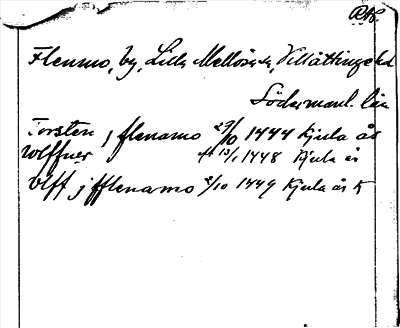 RAp.
Flenmo, by, Lilla Mellösa sn, Villåttinge hd
Södermanl. län
Torsten j flenamo 29/10 1444 Kjula ås
Wlffuer " 13/1 1448 Kjula ås
Vlff j fflenamo 2/10 1449 Kjula ås